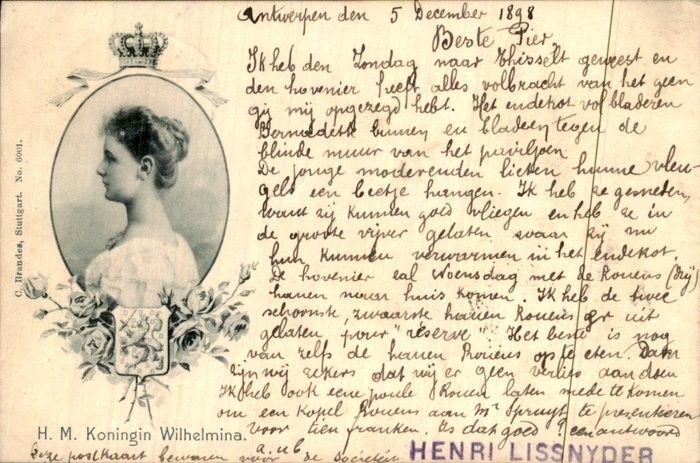 Antwerpen den 5 December 1898
Beste Pier,
Ik heb den Zondag naar Thisselt geweest en
den hovenier heeft alles volbracht van het geen
gij mij opgezegd hebt. Het endekot vol bladeren
binnen en bladeren tegen de
blinde muur van het paviljoen
De jonge moderenden lieten hunne vleu-
gels een beetje hangen. Ik heb ze gesneden,
want zij kunnen goed vliegen en heb ze in
de groote vijver gelaten waar zij nu
hun kunnen verwarmen in het endekot.
De hovenier zal Woensdag met de Rouens (drij)
hanen naar huis komen. Ik heb de twee
schoonste, zwaarste hanen Rouens er uit
gelaten pour "réserve". Het beste is nog
van zelfs de hanen Rouens op te eten. Dan
zijn wij zekers dat wij er geen verlies aan doen
Ik heb ook eene poule Rouen laten mede te komen
om een kopel Rouens aan Mr Spruyt te presenteeren
voor tien franken. Is dat goed? een antwoord
a.u.b.
deze postkaart bewaren voor de societeit
HENRI LISSNYDER
C. Brandes, Stuttgart. No. 6001.
H. M. Koningin Wilhelmina.